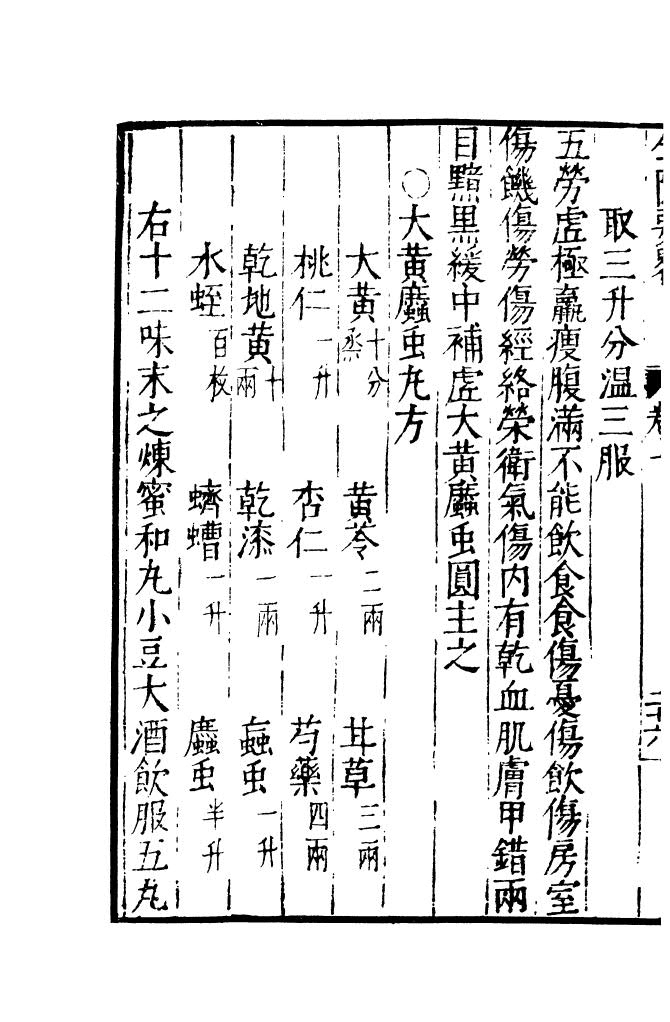 取三升分温三服
五勞虛極羸瘦腹滿不能飲食食傷憂傷飲傷房室
傷饑傷勞傷經絡榮衛氣傷内有乾血肌膚甲錯兩
目黯黑緩中補虛大黃䗪虫圓主之
○大黃䗪虫丸方
大黃十分蒸 黃芩二兩 甘草三兩
桃仁一升 杏仁一升 芍藥四兩
乾地黃十兩 乾漆一兩 蝱虫一升
水蛭百枚 蠐螬一升 䗪虫半升
右十二味末之煉蜜和丸小豆大酒飲服五丸